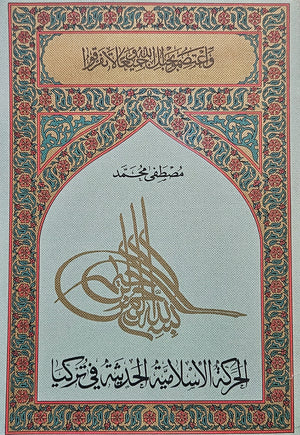 واعتصموا بحبل الله جميعا ولا تفرقوا
مصطفى محمد
بسم الله الرحمن الرحيم
الحركة الإسلامية الحديثة في تركيا